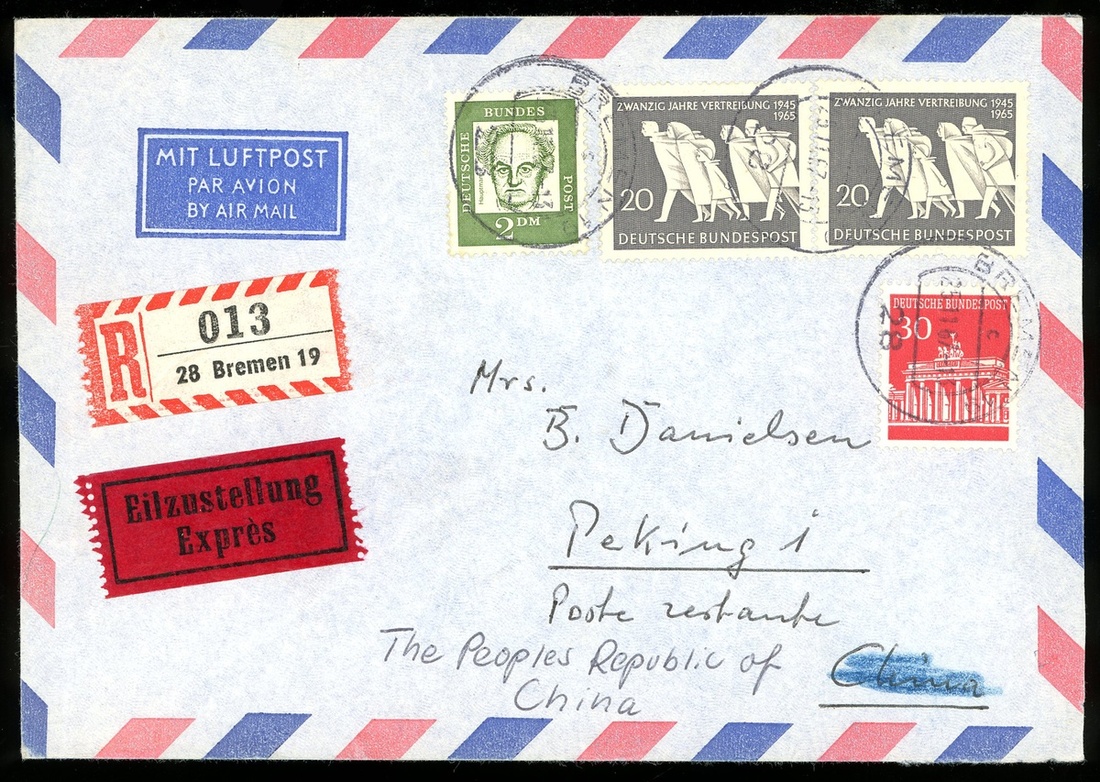 MIT LUFTPOST
PAR AVION
BY AIR MAIL
DEUTSCHE
BUNDES
POST
2 DM
ZWANZIG JAHRE VERTREIBUNG 1945
1965
20
DEUTSCHE BUNDESPOST
ZWANZIG JAHRE VERTREIBUNG 1945
1965
20
DEUTSCHE BUNDESPOST
DEUTSCHE BUNDESPOST
30
BREMEN
28
R
013
28 Bremen 19
Eilzustellung
Exprès
Mrs.
B. Danielsen
Peking 1
Poste restante
The Peoples Republic of
China
China